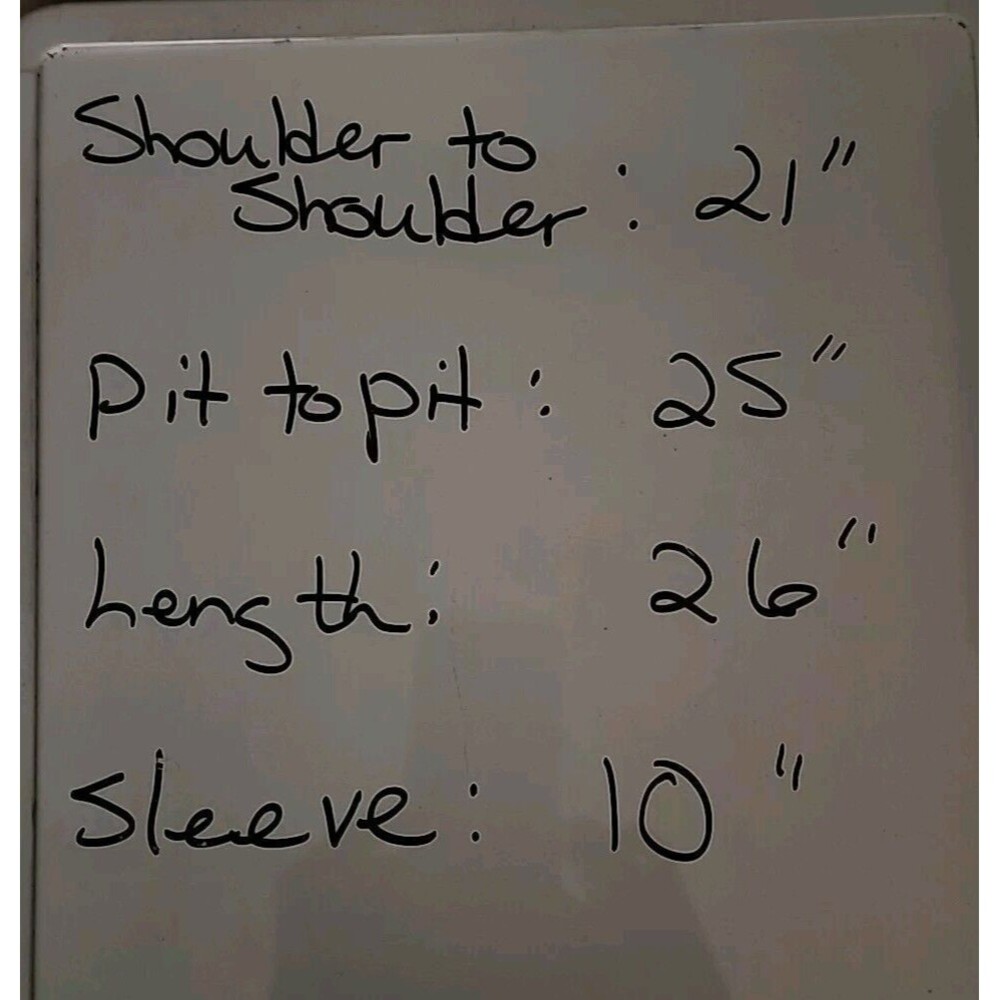 Shoulder to
Shoulder: 21"
Pit to pit: 25"
Length: 26"
Sleeve: 10"